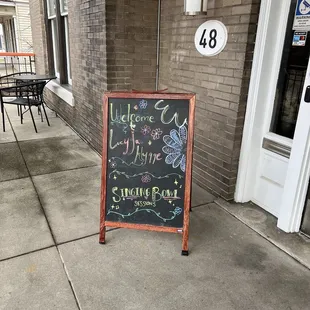 48
Welcome
Layla
Hynne
Singing Bowl
SESSIONS